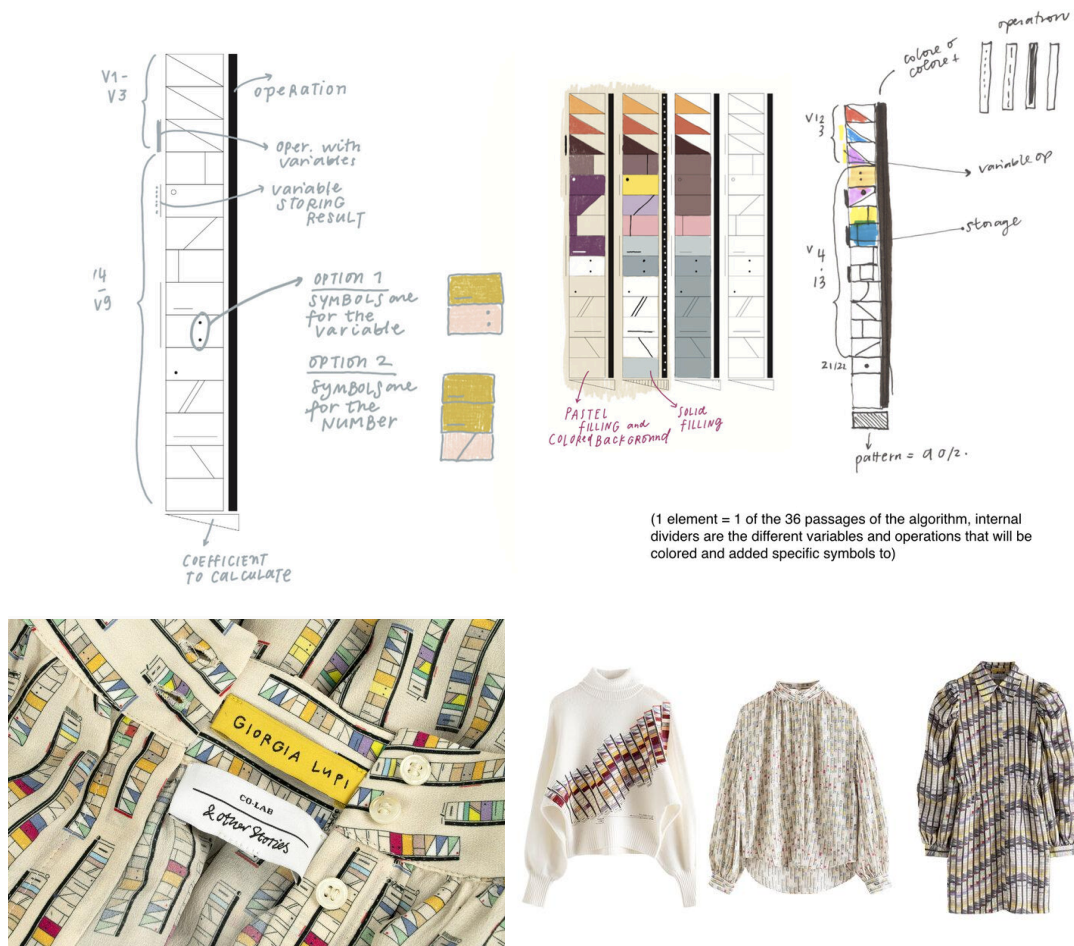 V1-
V3
OPERATION
OPER. WITH
VARIABLES
VARIABLE
STORING
RESULT
V9
OPTION 1
SYMBOLS are
for the
VARIABLE
OPTION 2
SYMBOLS are
for the
NUMBER
COEFFICIENT
TO CALCULATE
PASTEL
FILLING and
COLORED BACKGROUND
SOLID
FILLING
operation
colore o
colore +
variable op
storage
V
4
13
21/22
pattern =
(1 element = 1 of the 36 passages of the algorithm, internal
dividers are the different variables and operations that will be
colored and added specific symbols to)
GIORGIA LUPI
CO-LAB
& Other Stories